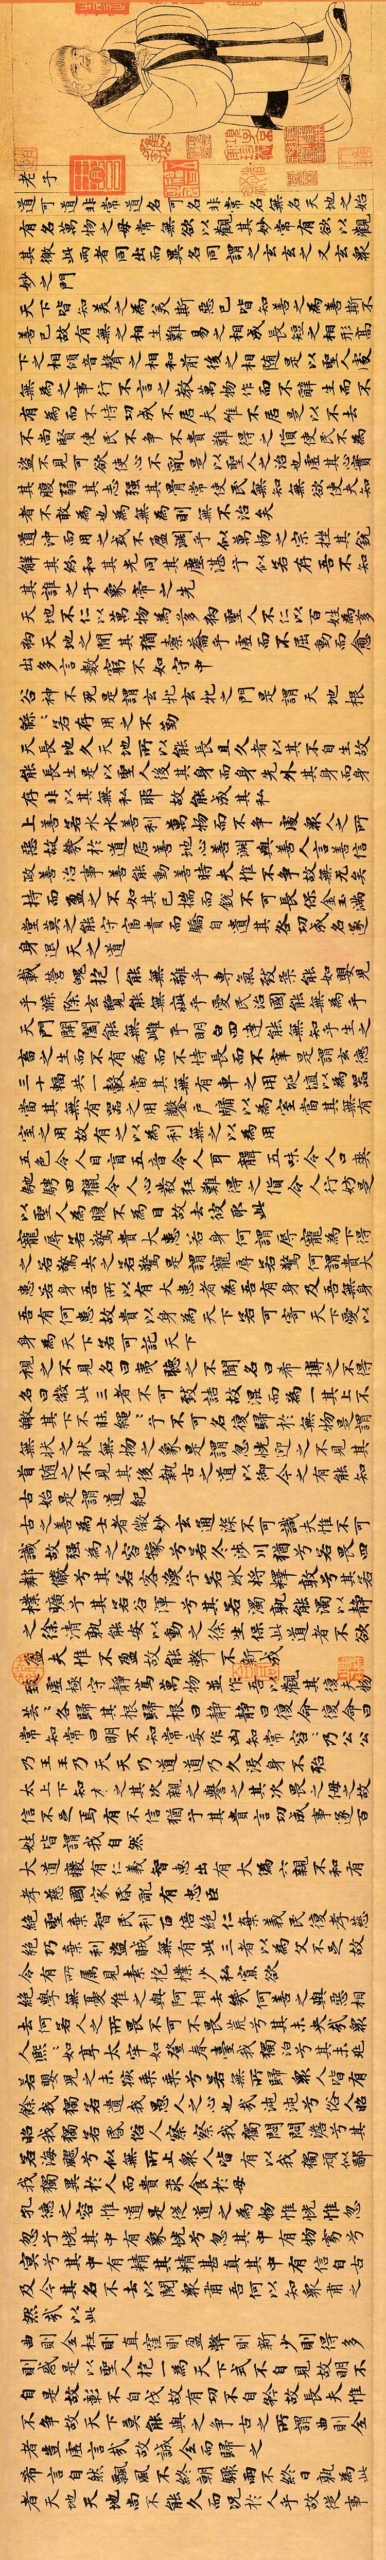 老子
道可道非常道名可名非常名無名天地之始
有名萬物之母常無欲以觀其妙常有欲以觀
其徼此兩者同出而異名同謂之玄玄之又玄衆
妙之門
天下皆知美之為美斯惡已皆知善之為善斯不
善已故有無之相生難易之相成長短之相形高
下之相傾音聲之相和前後之相随是以聖人處
無為之事行不言之教萬物作而不辭生而不
有為而不恃功成不居夫惟不居是以不去
不尚賢使民不爭不貴難得之貨使民不為
盜不見可欲使心不亂是以聖人之治也虚其心實
其腹弱其志强其骨常使民無知無欲使夫知
者不敢為也為無為則無不治矣
道沖而用之或不盈淵乎似萬物之宗挫其銳
解其紛和其光同其塵湛乎似若存吾不知
其誰之子象帝之先
天地不仁以萬物為芻狗聖人不仁以百姓為芻
狗天地之間其猶橐籥乎虛而不屈動而愈
出多言數窮不如守中
谷神不死是謂玄牝玄牝之門是謂天地根
綿綿若存用之不勤
天長地久天地所以能長且久者以其不自生故
能長生是以聖人後其身而身先外其身而身
存非以其無私耶故能成其私
上善若水水善利萬物而不爭處衆人之所
惡故幾於道居善地心善淵與善人言善信
政善治事善能動善時夫惟不爭故無尤矣
持而盈之不如其已揣而銳不可長保金玉滿
堂莫之能守富貴而驕自遺其咎功成名遂
身退天之道
載營魄抱一能無離乎專氣致柔能如嬰兒
乎滌除玄覽能無疵乎愛民治國能無為乎
天門開闔能無雌乎明白四達能無知乎生之
畜之生而不有為而不恃長而不宰是謂玄德
三十輻共一轂當其無有車之用埏埴以為器
當其無有器之用鑿戶牖以為室當其無有
室之用故有之以為利無之以為用
五色令人目盲五音令人耳聾五味令人口爽
馳騁田獵令人心發狂難得之貨令人行妨是
以聖人為腹不為目故去彼取此
寵辱若驚貴大患若身何謂辱寵為下得
之若驚失之若驚是謂寵辱若驚何謂貴大
患若身吾所以有大患者為吾有身及吾無身
吾有何患故貴以身為天下若可寄天下愛以
身為天下若可託天下
視之不見名曰夷聽之不聞名曰希搏之不得
名曰微此三者不可致詰故混而為一其上不
皦其下不昧繩繩兮不可名復歸於無物是謂
無狀之狀無物之象是謂忽恍迎之不見其
首随之不見其後執古之道以御今之有能知
古始是謂道紀
古之善為士者微妙玄通深不可識夫惟不可
識故强為之容豫兮若冬涉川猶兮若畏四
鄰儼兮其若客渙兮若冰將釋敦兮其若
樸曠乎其若谷渾兮其若濁孰能濁以靜
之徐清孰能安以動之徐生保此道者不欲
盈夫惟不盈故能弊不新成
致虛極守靜篤萬物並作吾以觀其復夫物
芸芸各歸其根歸根曰靜靜曰復命復命曰
常知常曰明不知常妄作凶知常容容乃公公
乃王王乃天天乃道道乃久沒身不殆
太上下知有之其次親之譽之其次畏之侮之故
信不足焉有不信猶乎其貴言功成事遂百
姓皆謂我自然
大道廢有仁義智惠出有大偽六親不和有
孝慈國家昏亂有忠臣
絕聖棄智民利百倍絕仁棄義民復孝慈
絕巧棄利盜賊無有此三者以為文不足故
令有所屬見素抱樸少私寡欲
絕學無憂唯之與阿相去幾何善之與惡相
去何若人之所畏不可不畏荒兮其未央哉衆
人熙熙如享太牢如登春臺我獨泊兮其未兆
若嬰兒之未孩乘乘兮若無所歸衆人皆有
餘我獨若遺我愚人之心也哉沌沌兮俗人昭
昭我獨若昏俗人察察我獨悶悶澹兮其
若海飂兮似無所止衆人皆有以我獨頑似鄙
我獨異於人而貴求食於母
孔德之容惟道是從道之為物惟恍惟忽
忽乎恍其中有象恍兮忽其中有物窈兮
冥兮其中有精其精甚真其中有信自古
及今其名不去以閱衆甫吾何以知衆甫之
然哉以此
曲則全枉則直窪則盈弊則新少則得多
則惑是以聖人抱一為天下式不自見故明不
自是故彰不自伐故有功不自矜故長夫惟
不爭故天下莫能與之爭古之所謂曲則全
者豈虛言哉故誠全而歸之
希言自然飄風不終朝驟雨不終日孰為此
者天地天地尚不能久而況於人乎故從事